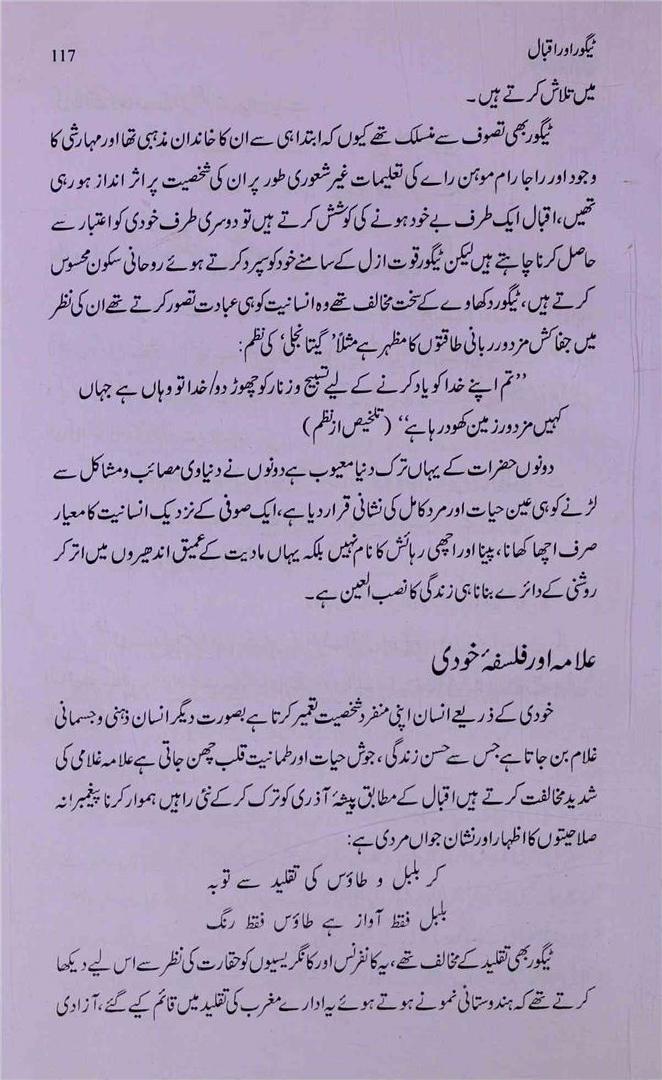 ٹیگور اور اقبال
117
میں تلاش کرتے ہیں۔
ٹیگور بھی تصوف سے منسلک تھے کیوں کہ ابتدا ہی سے ان کا خاندان مذہبی تھا اور مہارشی کا
وجود اور راجا رام موہن راے کی تعلیمات غیر شعوری طور پر ان کی شخصیت پر اثر انداز ہو رہی
تھیں، اقبال ایک طرف بے خود ہونے کی کوشش کرتے ہیں تو دوسری طرف خودی کو اعتبار سے
حاصل کرنا چاہتے ہیں لیکن ٹیگور قوت ازل کے سامنے خود کو سپرد کرتے ہوئے روحانی سکون محسوس
کرتے ہیں، ٹیگور دکھاوے کے سخت مخالف تھے وہ انسانیت کو ہی عبادت تصور کرتے تھے ان کی نظر
میں جفاکش مزدور ربانی طاقتوں کا مظہر ہے مثلاً ’گیتانجلی‘ کی نظم:
’’تم اپنے خدا کو یاد کرنے کے لیے تسبیح و زنار کو چھوڑ دو/خدا تو وہاں ہے جہاں
کہیں مزدور زمین کھود رہا ہے‘‘ (تلخیص از نظم)
دونوں حضرات کے یہاں ترک دنیا معیوب ہے دونوں نے دنیاوی مصائب و مشاکل سے
لڑنے کو ہی عین حیات اور مرد کامل کی نشانی قرار دیا ہے، ایک صوفی کے نزدیک انسانیت کا معیار
صرف اچھا کھانا، پینا اور اچھی رہائش کا نام نہیں بلکہ یہاں مادیت کے عمیق اندھیروں میں اتر کر
روشنی کے دائرے بنانا ہی زندگی کا نصب العین ہے۔
علامہ اور فلسفۂ خودی
خودی کے ذریعے انسان اپنی منفرد شخصیت تعمیر کرتا ہے بصورت دیگر انسان ذہنی و جسمانی
غلام بن جاتا ہے جس سے حسن زندگی، جوش حیات اور طمانیت قلب چھن جاتی ہے علامہ غلامی کی
شدید مخالفت کرتے ہیں اقبال کے مطابق پیشۂ آذری کو ترک کرکے نئی راہیں ہموار کرنا پیغمبرانہ
صلاحیتوں کا اظہار اور نشان جواں مردی ہے:
کر بلبل و طاؤس کی تقلید سے توبہ
بلبل فقط آواز ہے طاؤس فقط رنگ
ٹیگور بھی تقلید کے مخالف تھے، یہ کانفرنس اور کانگریسیوں کو حقارت کی نظر سے اس لیے دیکھا
کرتے تھے کہ ہندوستانی نمونے ہوتے ہوئے یہ ادارے مغرب کی تقلید میں قائم کیے گئے، آزادی